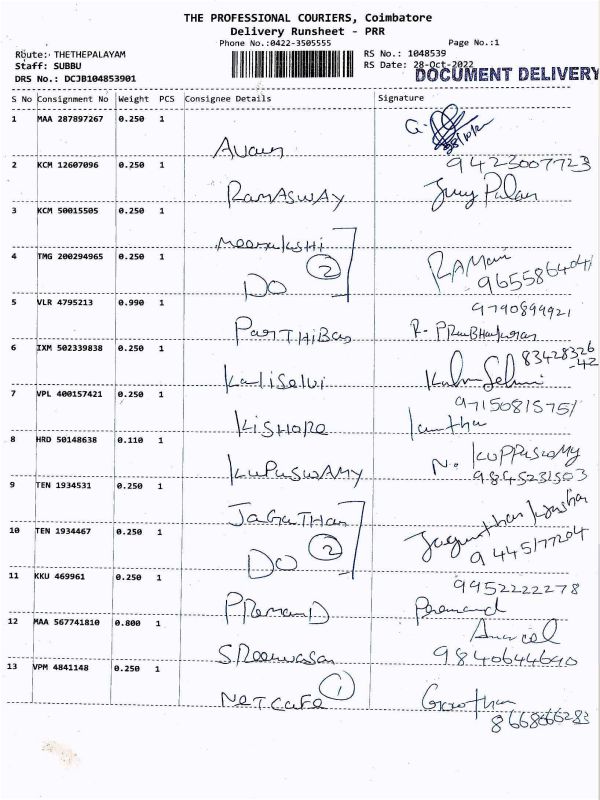 THE PROFESSIONAL COURIERS, Coimbatore
Delivery Runsheet - PRR
Phone No.:0422-3505555 Page No.:1
Route: THETHEPALAYAM RS No.: 1048539
Staff: SUBBU RS Date: 28-Oct-2022
DRS No.: DCJB104853901 DOCUMENT DELIVERY
S No Consignment No Weight PCS Consignee Details Signature
1 MAA 287897267 0.250 1
2 KCM 12607096 0.250 1 9423007723
RAMASWAY
3 KCM 50015505 0.250 1
Meenakshi
4 TMG 200294965 0.250 1 2 RAMani
DO
5 VLR 4795213 0.990 1 9790899921
PARTHIBAN R- PRABHAKARAN
6 IXM 502339838 0.250 1 83428326
-42
KaliSelvi
7 VPL 400157421 0.250 1 9715081575
KISHORE
8 HRD 50148638 0.110 1 N. KUPPUSWAMY
KUPUSWAMY 9845231503
9 TEN 1934531 0.250 1
JAGATHAN
10 TEN 1934467 0.250 1 2
DO 9445177204
11 KKU 469961 0.250 1 9952222278
PREMAND Peremand
12 MAA 567741810 0.800 1
SReenivasan 9840644690
13 VPM 4841148 0.250 1 1
NETCAFE